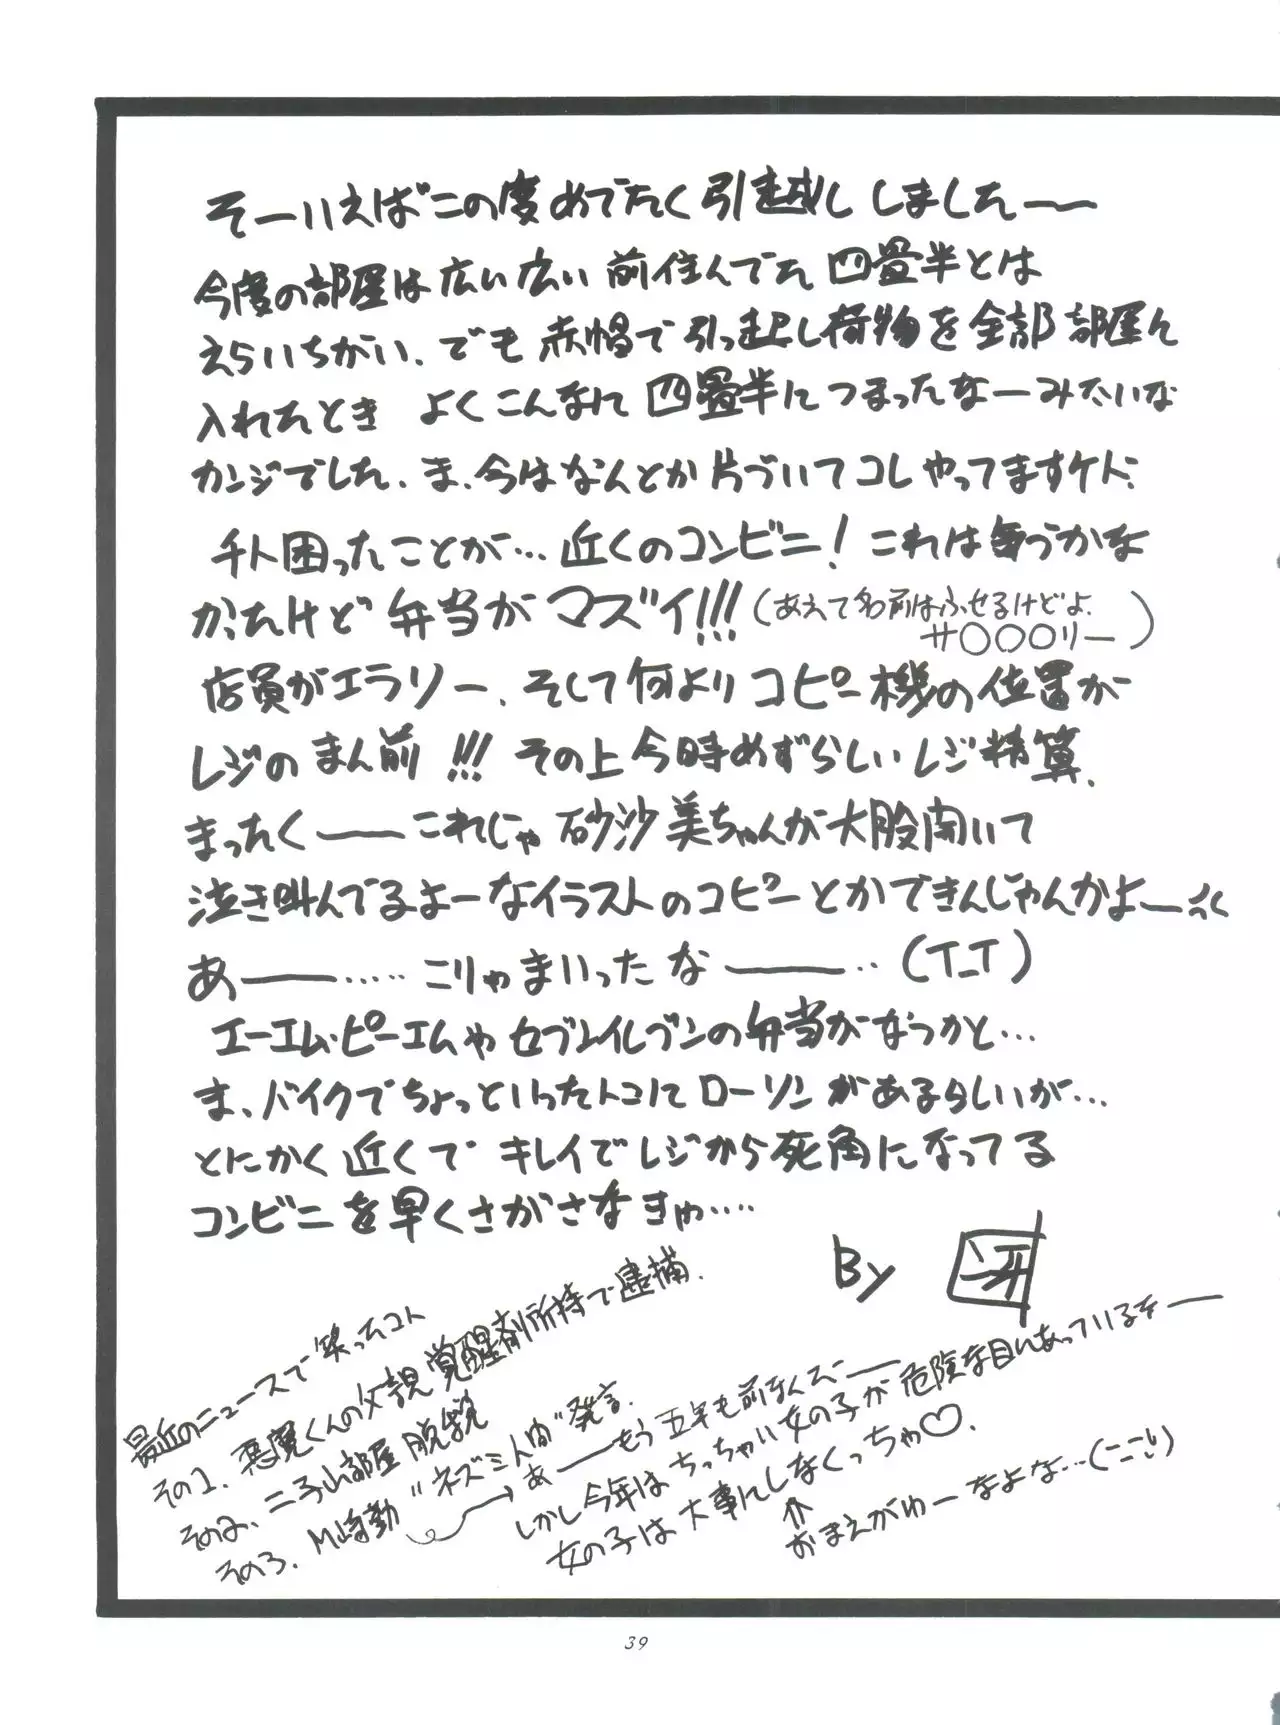 そーいえばこの度めでたく引越ししました——
今度の部屋は広い広い 前住んでた 四畳半とは
えらいちがい、でも 赤帽で引っ越し荷物を全部部屋に
入れたとき よくこんなに 四畳半につまったなーみたいな
カンジでした、ま、今はなんとか片づいてコレやってますケド、
チト困ったことが… 近くのコンビニ! これは
かったけど 弁当が マズイ!!!(あえて名前はふせるけどよ、
サ〇〇〇リー)
店員がエラソー、そして何よりコピー機の位置が
レジのまん前!!! その上今時めずらしいレジ精算、
まったく——これじゃ 砂沙美ちゃんが大股開いて
泣き叫んでるよーなイラストのコピーとかできんじゃんかよ—
あ——‥‥‥ こりゃまいったな——‥(T_T)
エーエム・ピーエムやセブンイレブンの弁当がなつかと…
ま、バイクでちょっといったトコにローソンがあるらしいが…
とにかく近くで キレイでレジから死角になってる
コンビニを早くさがさなきゅ‥‥
By
最近のニュースで笑ったコト
その1、悪魔くんの父親覚醒剤所持で逮捕、
その2、二子山部屋脱税
その3、M崎勤“ネズミ人間”発言、
あ——もう五年も前なんだ——
しかし今年はちっちゃい女の子が危険な目にあっているな——
女の子は大事にしなくっちゃ♡、
おまえがゆーなよな…(ニニし)
39